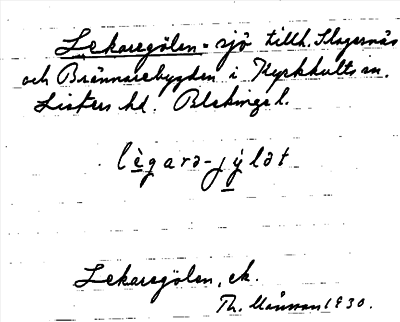 Lekaregölen = sjö tillh. Slagesnäs
och Brännarebygden i Kyrkhults sn.
Listers hd. Blekinge l.
lègarə-jỳlət
Lekaregölen, ek.
Th. Månsson 1930.